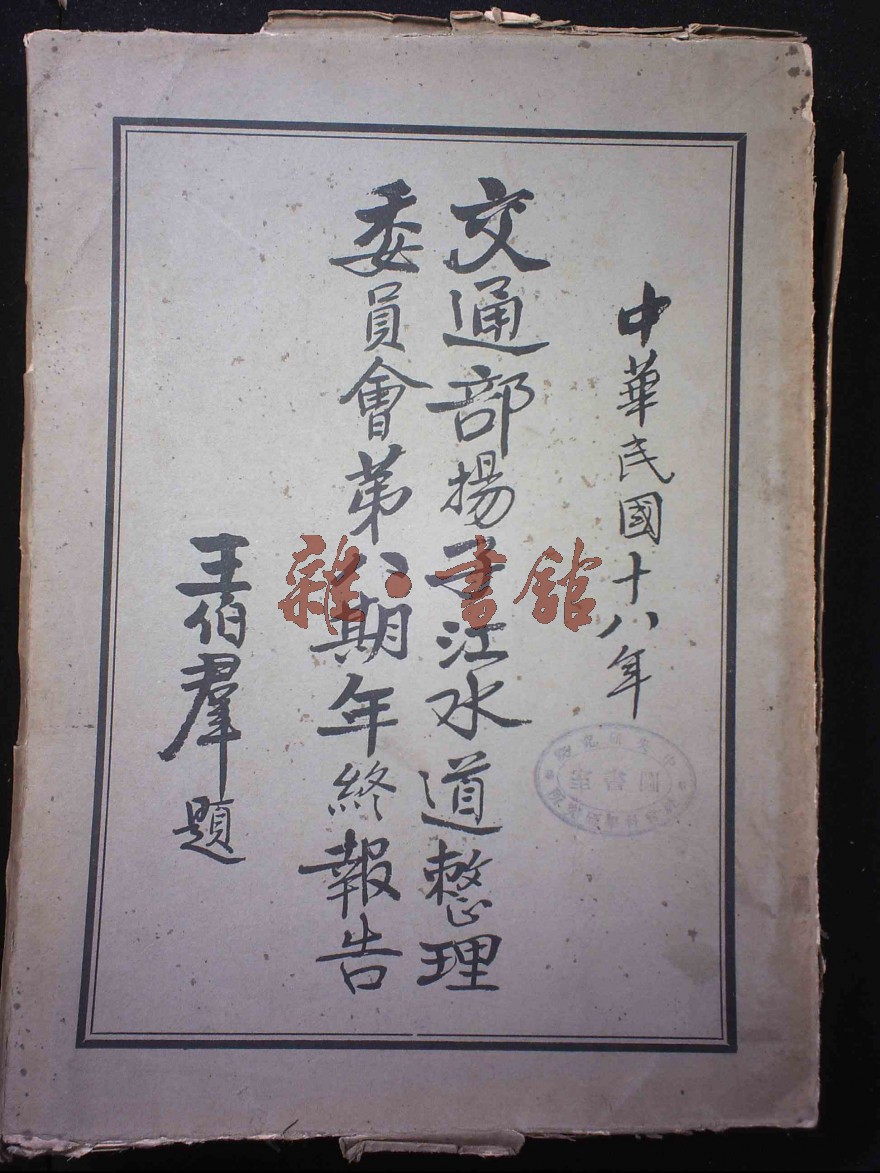 中華民國十八年
交通部揚子江水道整理
委員會第八期年終報告
王伯羣題
雜·書館
圖書室